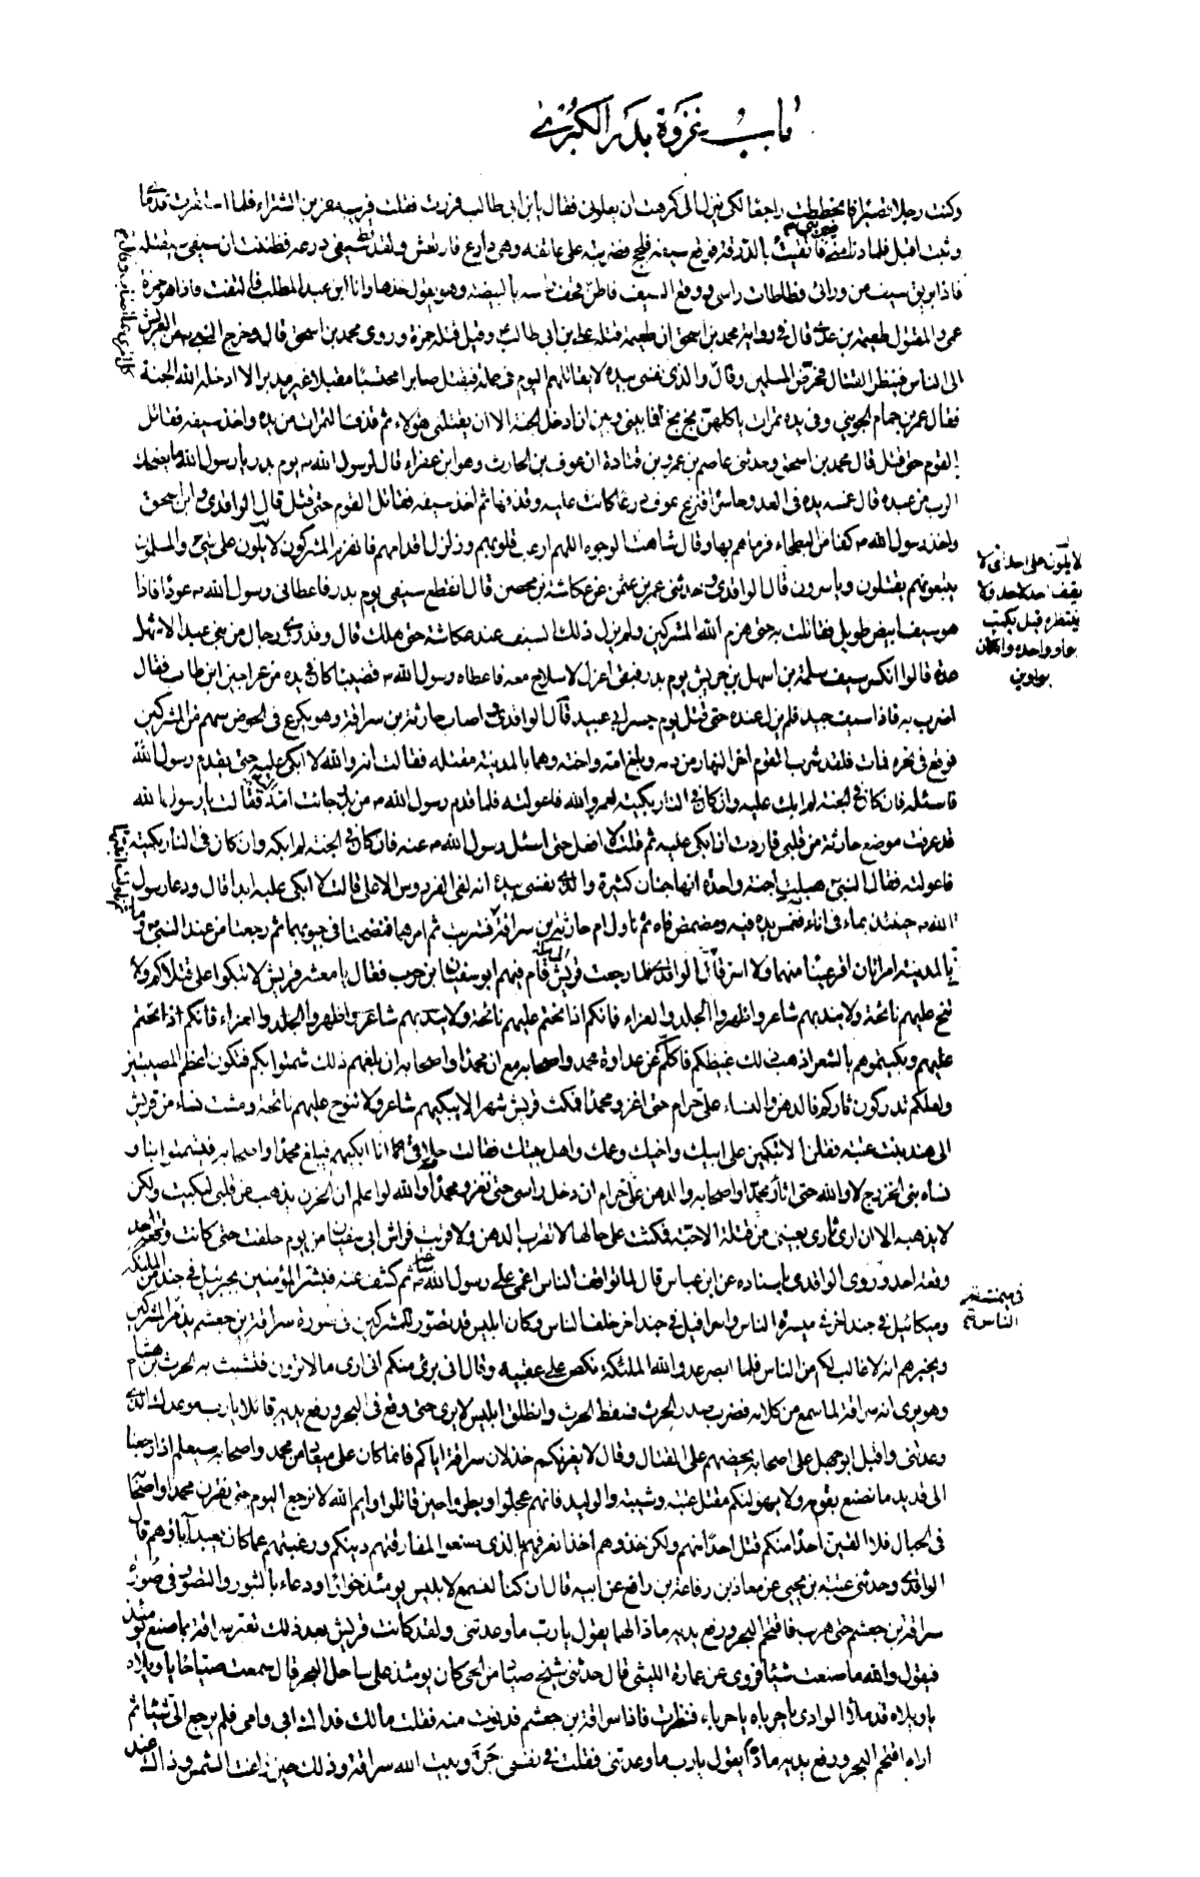 باب غزوة بدر الكبرى
وكنت رجلا قصيرا فانحططت راجعا لكى ينزل الى كرهت ان يعلونى فقال يا بن ابى طالب فررت فقلت قريب مفر بن الشتراء فلما استقرت قدماى
وثبت اقبل فلما دنا منى ضربنى فاتقيت بالدرقة فوقع سيفه فلحج فضربته على عاتقه وهو دارع فارتعش ولقد قط سيفى درعه فظننت ان سيفى سيقتله
فاذا بريق سيف من ورائى فطأطأت راسى ووقع السيف فاطن قحف راسه بالبيضة وهو يقول خذها وانا ابن عبد المطلب فالتفت فاذا هو حمزة
عمى والمقتول طعيمة بن عدى قال فى رواية محمد بن اسحق ان طعيمة قتله على بن ابى طالب وقيل قتله حمزة وروى محمد بن اسحق قال وخرج النبى ص من العريش
الى الناس فينظر القتال فحرّض المسلمين وقال والذى نفسى بيده لا يقاتلهم اليوم رجل فيقتل صابرا محتسبا مقبلا غير مدبر الا ادخله الله الجنة
فقال عمر بن حمام الجموحى وفى يده تمرات ياكلهن بخ بخ فما بينى وبين ان ادخل الجنة الا ان يقتلنى هؤلاء ثم قذف التمرات من يده واخذ سيفه فقاتل
القوم حتى قتل قال محمد بن اسحق وحدثنى عاصم بن عمرو بن قتادة ان عوف بن الحارث وهو ابن عفراء قال لرسول الله ص يوم بدر يا رسول الله ما يضحك
الرب من عبده قال غمسه يده فى العدو حاسرا فنزع عوف درعا كانت عليه وقذفها ثم اخذ سيفه فقاتل القوم حتى قتل قال الواقدى وابن اسحق
واخذ رسول الله ص كفا من البطحاء فرماهم بها وقال شاهت الوجوه اللهم ارعب قلوبهم وزلزل اقدامهم فانهزم المشركون لا يلوون على شئ والمسلمون
يتبعونهم يقتلون وياسرون قال الواقدى وحدثنى عمر بن عثمن عن عكاشة بن محصن قال انقطع سيفى يوم بدر فاعطانى رسول الله ص عودا فاذا
هو سيف ابيض طويل فقاتلت به حتى هزم الله المشركين ولم يزل ذلك السيف عند عكاشة حتى هلك قال وقد روى رجال من بنى عبد الاشهل
عدة قالوا انكسر سيف سلمة بن اسهل بن حريش يوم بدر فبقى اعزل لا سلاح معه فاعطاه رسول الله ص قضيبا كان فى يده من عراجين ابن طاب فقال
اضرب به فاذا سيف جيد فلم يزل عنده حتى قتل يوم جسر ابى عبيد قال الواقدى واصاب حارثة بن سراقة وهو يكرع فى الحوض سهم من المشركين
فوقع فى نحره فمات فلقد شرب القوم اخر النهار من دمه وبلغ امه واخته وهما بالمدينة مقتله فقالت امه والله لا ابكى عليه حتى يقدم رسول الله
فاسئله فان كان فى الجنة لم ابك عليه وان كان فى النار بكيته لعمر الله فاعولته فلما قدم رسول الله ص من بدر جائت امه فقالت يا رسول الله
قد عرفت موضع حارثة من قلبى فاردت ان ابكى عليه ثم قلت لا افعل حتى اسئل رسول الله ص عنه فان كان فى الجنة لم ابكه وان كان فى النار بكيته
فاعولته فقال النبى هبلت اجنة واحدة انها جنان كثيرة والذى نفسى بيده انه لفى الفردوس الاعلى قالت لا ابكى عليه ابدا قال ودعا رسول
الله ص حينئذ بماء فى اناء فغمس يده فيه ومضمض فاه ثم ناول ام حارثة بن سراقة فشربت ثم امرهما فنضحتا فى جيوبهما ثم رجعتا من عند النبى وما
بالمدينة امراتان اقر عينا منهما ولا اسر قال الواقدى فلما رجعت قريش الى مكة قام فيهم ابو سفيان بن حرب فقال يا معشر قريش لا تبكوا على قتلاكم ولا
تنح عليهم نائحة ولا يندبهم شاعر واظهروا الجلد والعزاء فانكم اذا نحتم عليهم نائحة ولا يندبهم شاعر واظهروا الجلد والعزاء فانكم اذا نحتم
عليهم وبكيتموهم بالشعر اذهب ذلك غيظكم فاكلكم عن عداوة محمد واصحابه مع ان محمدا واصحابه ان بلغهم ذلك شمتوا بكم فتكون اعظم المصيبتين
ولعلكم تدركون ثاركم فالدهن والنساء على حرام حتى اغزو محمدا فمكث قريش شهرا لا يبكيهم شاعر ولا تنوح عليهم نائحة ومشت نساء من قريش
الى هند بنت عتبة فقلن الا تبكين على ابيك واخيك وعمك واهل بيتك فقالت حلاقى انا ابكيهم فيبلغ محمدا واصحابه فيشمتوا بنا و
نساء بنى الخزرج لا والله حتى اثار محمدا واصحابه والدهن على حرام ان دخل راسى حتى نغزو محمدا والله لو اعلم ان الحزن يذهب من قلبى لبكيت ولكن
لا يذهبه الا ان ارى ثارى بعينى من قتلة الاحبة فمكثت على حالها لا تقرب الدهن ولا قربت فراش ابى سفيان من يوم حلفت حتى كانت وقعة احد
وقعة احد وروى الواقدى باسناده عن ابن عباس قال لما تواقف الناس اغمى على رسول الله ص ساعة ثم كشف عنه فبشر المؤمنين بجبرئيل فى جند من الملئكة
وميكائيل فى جند اخر فى ميسرة الناس واسرافيل فى جند اخر خلف الناس وكان ابليس قد تصور للمشركين فى صورة سراقة بن جعشم يذمر المشركين
ويخبرهم انه لا غالب لكم من الناس فلما ابصر عدو الله الملئكة نكص على عقبيه وقال انى برئ منكم انى ارى ما لا ترون فتشبث به الحرث بن هشام
وهو يرى انه سراقة لما سمع من كلامه فضرب صدر الحرث فسقط الحرث وانطلق ابليس لا يرى حتى وقع فى البحر ورفع يديه قائلا يا رب موعدك الذى
وعدتنى واقبل ابو جهل على اصحابه يحضهم على القتال وقال لا يغرنكم خذلان سراقة اياكم فانما كان على ميعاد من محمد واصحابه سيعلم اذا رجعنا
الى قديد ما نصنع بقومه ولا يهولنكم مقتل عتبة وشيبة والوليد فانهم عجلوا وبطروا حين قاتلوا وايم الله لا نرجع اليوم حتى نقرن محمدا واصحابه
فى الحبال فلا الفين احدا منكم قتل احدا منهم ولكن خذوهم اخذا نعرفهم بالذى صنعوا لمفارقتهم دينكم ورغبتهم عما كان يعبد آباؤهم قال
الواقدى وحدثنى عتبة بن يحيى عن معاذ بن رفاعة بن رافع عن ابيه قال ان كنا لنسمع لابليس يومئذ خوارا ودعاء بالثبور والتصور فى صورة
سراقة بن جعشم حتى هرب فاقتحم البحر ورفع يديه مادّا لهما يقول يا رب ما وعدتنى ولقد كانت قريش بعد ذلك تعيّر سراقة بما صنع يومئذ
فيقول والله ما صنعت شيئا فروى عن عمارة الليثى قال حدثنى شيخ صياد من الحى كان يومئذ على ساحل البحر قال سمعت صياحا يا ويلاه
يا ويلاه قد ملأ الوادى يا حرباه يا حرباه فنظرت فاذا سراقة بن جعشم فدنوت منه فقلت ما لك فداك ابى وامى فلم يرجع الى شيئا ثم
اراه اقتحم البحر ورفع يديه مادّا يقول يا رب ما وعدتنى فقلت فى نفسى جنّ وبيت الله سراقة وذلك حين زاغت الشمس وذاك عند
لا يلوون على احد اى لا
يقف احد لاحد ولا
ينتظره قيل يكتب
بواو واحدة وان كان
بواوين
فى ميمنة
الناس